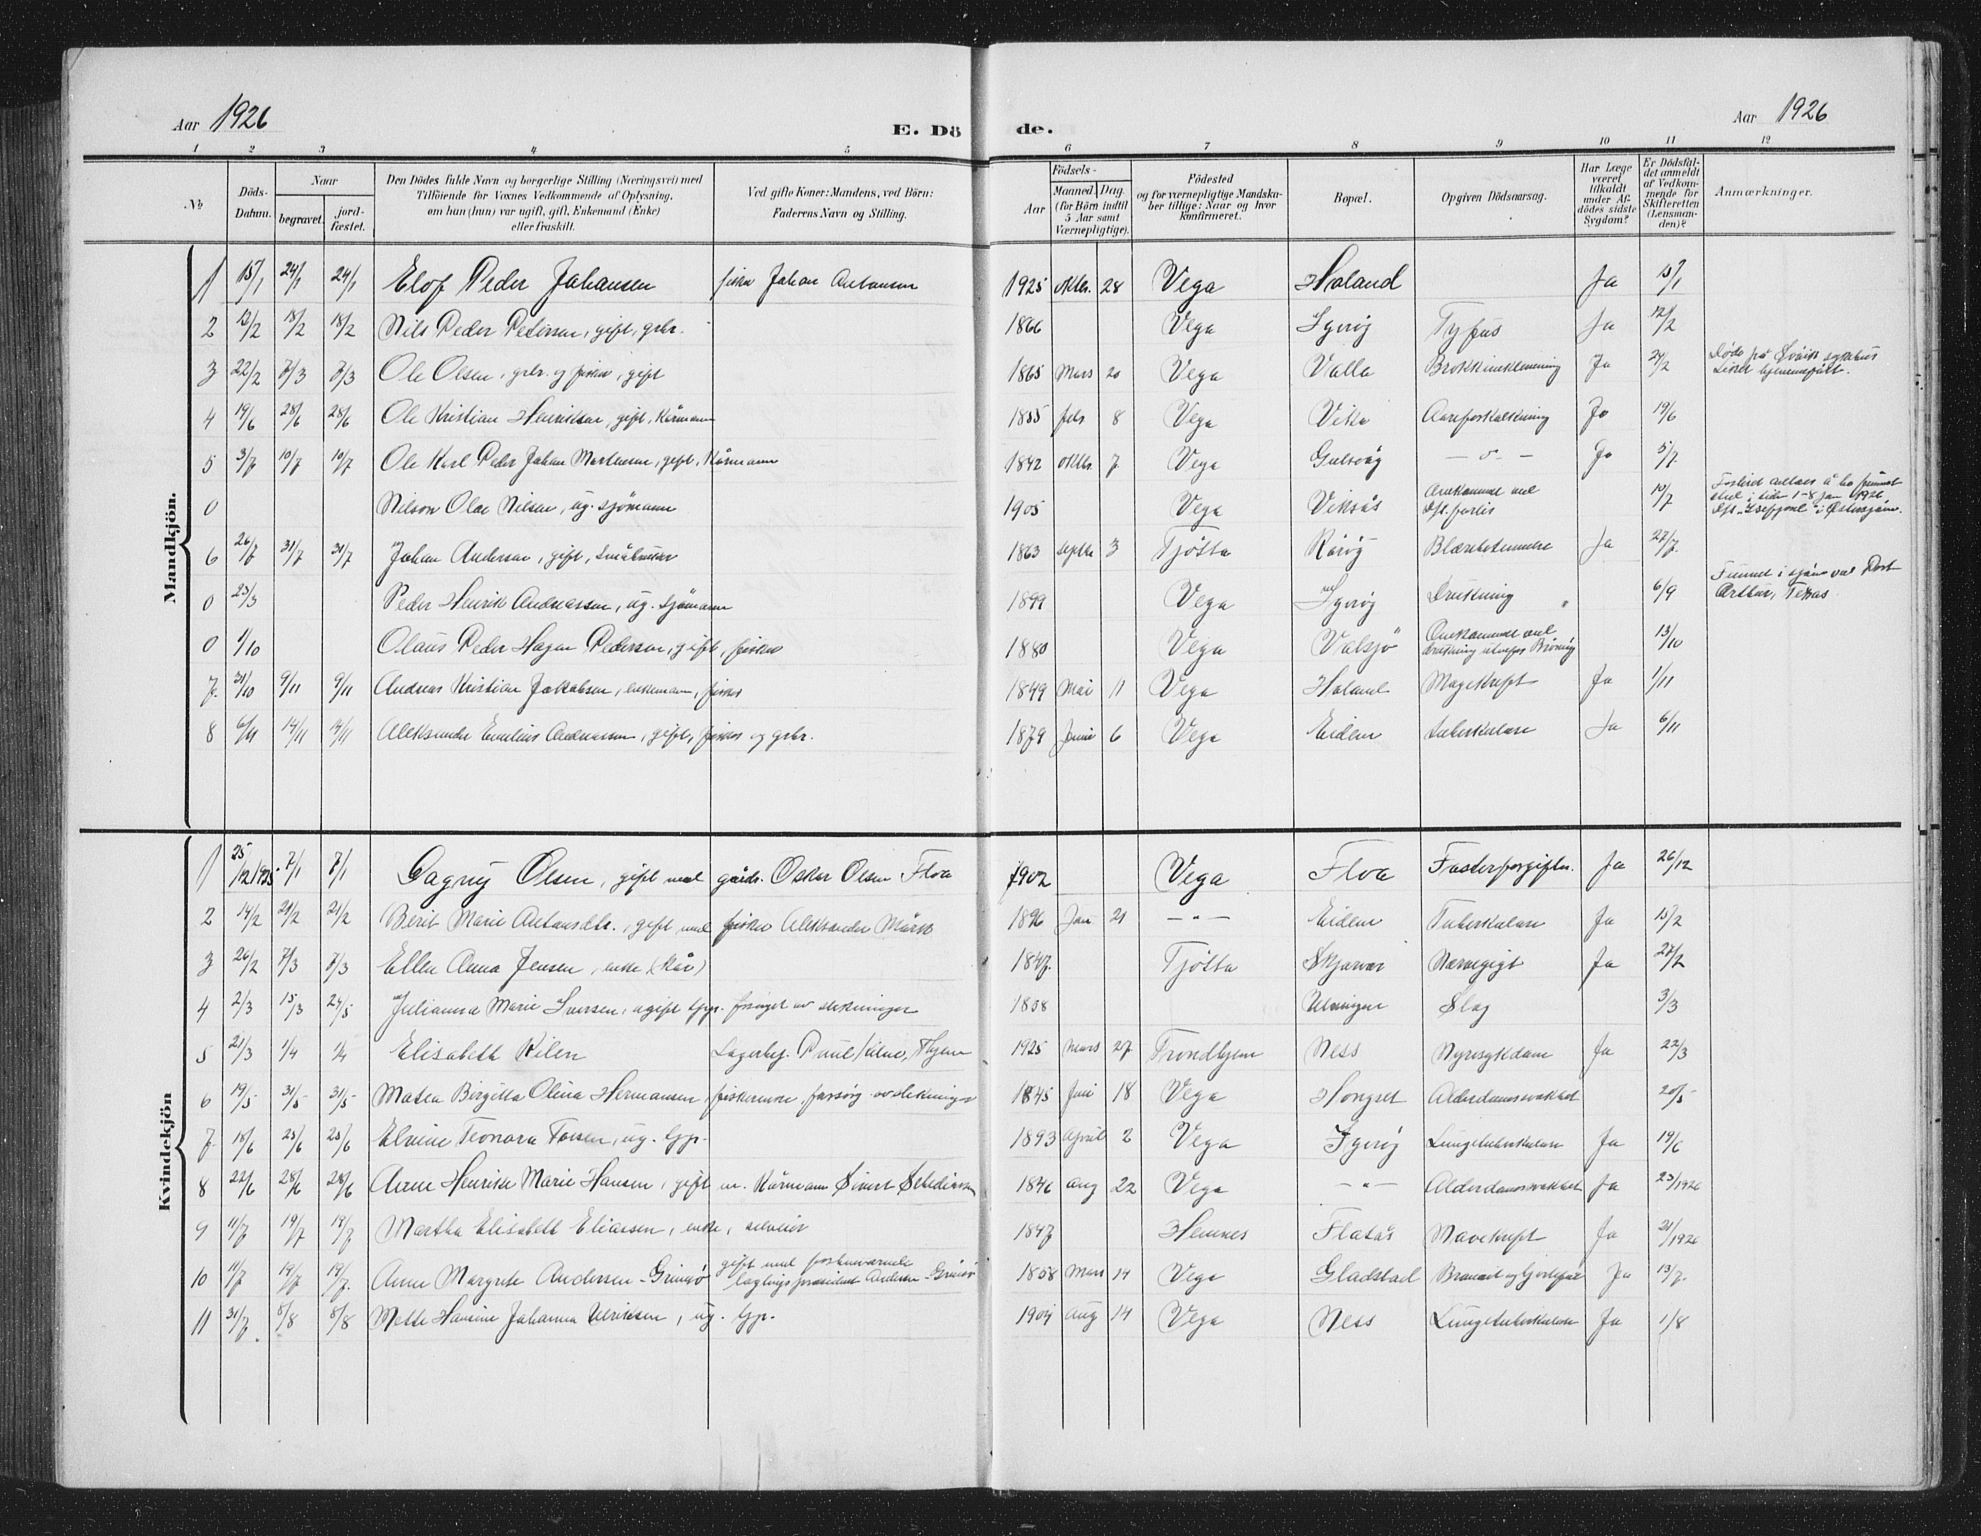 Aar 1926
E. Dö
de.
Aar 1926
1 2 3 4 5 6 7 8 9 10 11 12
No
Döds-Datum.
Naar
begravet.
jord-fæstet.
Den Dödes fulde Navn og borgerlige Stilling (Næringsvei) med
Tilföiende for Voxnes Vedkommende af Oplysning,
om han (hun) var ugift, gift, Enkemand (Enke)
eller fraskilt.
Ved gifte Koner: Mandens, ved Börn:
Faderens Navn og Stilling.
Födsels-
Aar
Maaned. Dag.
(for Börn indtil
5 Aar samt
Værnepligtige).
Födested
og for værnepligtige Mandska-
ber tillige: Naar og hvor
konfirmeret.
Bopæl.
Opgiven Dödsaarsag.
Har Læge
været
tilkaldt
under Af-
dödes sidste
Sygdom?
Er Dödsfal-
det anmeldt
af Vedkom-
mende for
Skifteretten
(Lensman-
den)?
Anmærkninger.
Mandkjön.
1 15/1 24/1 24/1 Elof Peder Johansen fisker Johan Antonsen 1925 Oktbr. 28 Vega Holand Ja 15/1
2 12/2 18/2 18/2 Nils Peder Petersen, gift, grbr. 1866 Vega Igerøy Tyfus Ja 12/2
3 22/2 7/3 7/3 Ole Olsen, grbr. og fisker, gift 1865 Mars 20 Vega Valla Brokkinklemning Ja 24/2 Døde på sykehus
4 19/6 28/6 28/6 Ole Kristian Henriksen, gift, Kårmann 1855 feb 8 Vega Vika Aareforkalkning Ja 19/6
5 3/7 10/7 10/7 Ole Karl Peder Johan Martinsen, gift, Kårmann 1842 Oktbr. 7 Vega Gulsvåg — " — Ja 5/7
0 Nilson Olai Nilsen, ug. sjømann 1905 Vega Viksås Omkommet ved forlis 10/7 i tiden 1-8 jan 1926
6 26/7 31/7 31/7 Johan Andersen, gift, Småbruker 1863 Septbr 3 Tjøtta Rørøy Blærebetennelse Ja 27/7
0 23/3 Peder Henrik Andreassen, ug. sjømann 1899 Vega Igerøy Drukning " 6/9 Funnet i sjøen ved Port
Arthur, Texas.
0 1/10 Olaus Peder Hagen Pedersen, gift, fisker 1880 Vega Valsjø Omkommet ved
drukning utenfor Brønnøy 13/10
7. 31/10 9/11 9/11 Andreas Kristian Jakobsen, enkemann, fisker 1849 Mai 11 Vega Holand Magekreft Ja 1/11
8 6/11 14/11 14/11 Aleksander Emelius Andreassen, gift, fisker og grbr. 1879 Juni 6 Vega Eidem Tuberkulose Ja 6/11
Kvindekjön
1 25/12 1925 7/1 7/1 Gagny Olsen, gift med gårdbr. Oskar Olsen Floa 1902 Vega Floa Ja 26/12
2 14/2 21/2 21/2 Berit Marie Antonsdtr., gift med fisker Aleksander 1896 Jan 21 — " — Eidem Tuberkulose Ja 15/2
3 26/2 7/3 7/3 Ellen Anna Jensen, enke (kår) 1847. Tjøtta Skjærvær Nervegigt Ja 27/2
4 2/3 15/3 24/5 Julianna Marie Iversen, ugift tjp. forsørget av slektninger 1858 Ulvingen Slag 3/3
5 21/3 1/4 1/4 Elisabeth Kilen Lagerbej. Paul Kilen, Thjem 1925 Mars 27 Trondhjem Ness Nyresykdom Ja 22/3
6 19/5 31/5 31/5 Matea Birgitta Olina Hermansen, fiskerenke, forsørg. av slektninger 1845 Juni 18 Vega Hongset Alderdomssvakhet 20/5
7. 18/6 25/6 25/6 Elvine Leonora Toisen, ug. tjp. 1893 April 2 Vega Igerøy Lungetuberkulose Ja 19/6
8 22/6 28/6 28/6 Anne Henrikke Marie Hansen, gift m. Kårmann Sivert 1846 Aug 22 Vega — " — Alderdomssvakhet Ja 23/1926
9 11/7 19/7 19/7 Martha Elisabeth Eliassen, enke, selveier 1847 Hemnes Flatås Mavekreft Ja 21/1926
10 11/7 19/7 19/7. Anne Margrete Andersen-Grimsø gift med forhenværende
lagtingspresident Andersen-Grimsø 1858 Mars 14 Vega Gladstad Ja 13/7.
11 31/7. 8/8 8/8 Mette Hansine Johanna Ulriksen, ug. tjp. 1904 Aug 14 Vega Ness Lungetuberkulose Ja 1/8